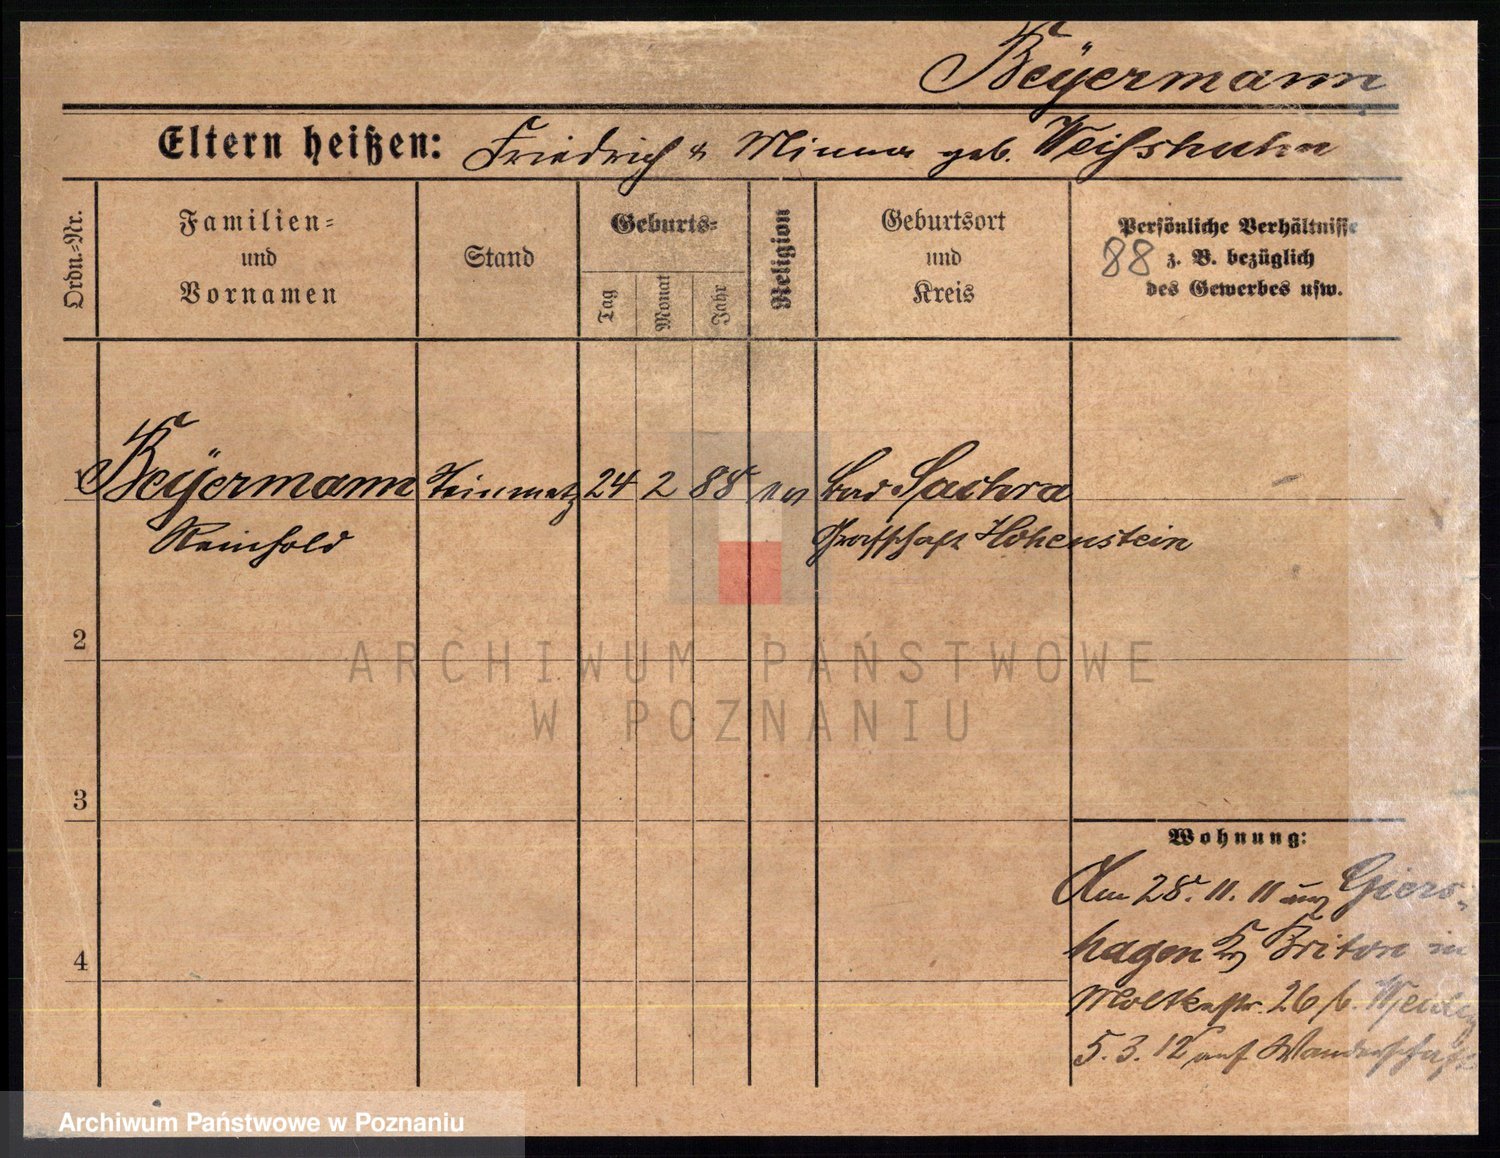 Beÿermann
Eltern heißen: Friedrich & Minna geb. Weißhuhn
Ordn.=Nr.
Familien=
und
Vornamen
Stand
Geburts=
Tag
Monat
Jahr
Religion
Geburtsort
und
Kreis
Persönliche Verhältnisse
88 z. B. bezüglich
des Gewerbes usw.
1 Beÿermann Steinmetz 24 2 88 ev Bad Sachsa
Reinhold Grafschaft Hohenstein
2
ARCHIWUM PAŃSTWOWE
W POZNANIU
3
Wohnung:
Am 28. 11. 11 aus Giers-
hagen Kr Brilon in
4
Moltkestr. 26 b.
5. 3. 12 auf Wanderschaft
Archiwum Państwowe w Poznaniu